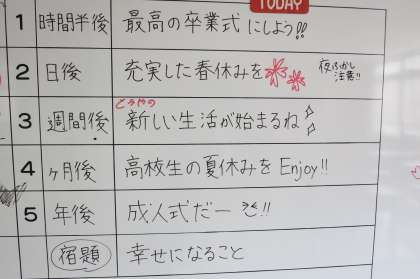 TODAY
1 時間半後 最高の卒業式にしよう!!
2 日後 充実した春休みを 夜ふかし注意!!
3 週間後 新しい生活が始まるね
4 ヶ月後 高校生の夏休みをEnjoy!!
5 年後 成人式だー!!
宿題 幸せになること